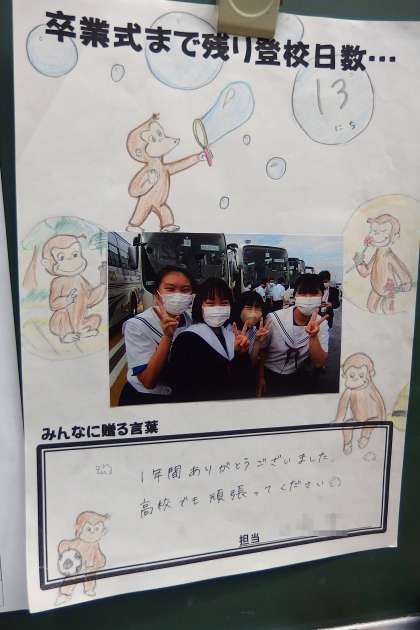 卒業式まで残り登校日数…
13
にち
みんなに贈る言葉
1年間ありがとうございました。
高校でも頑張ってください
担当